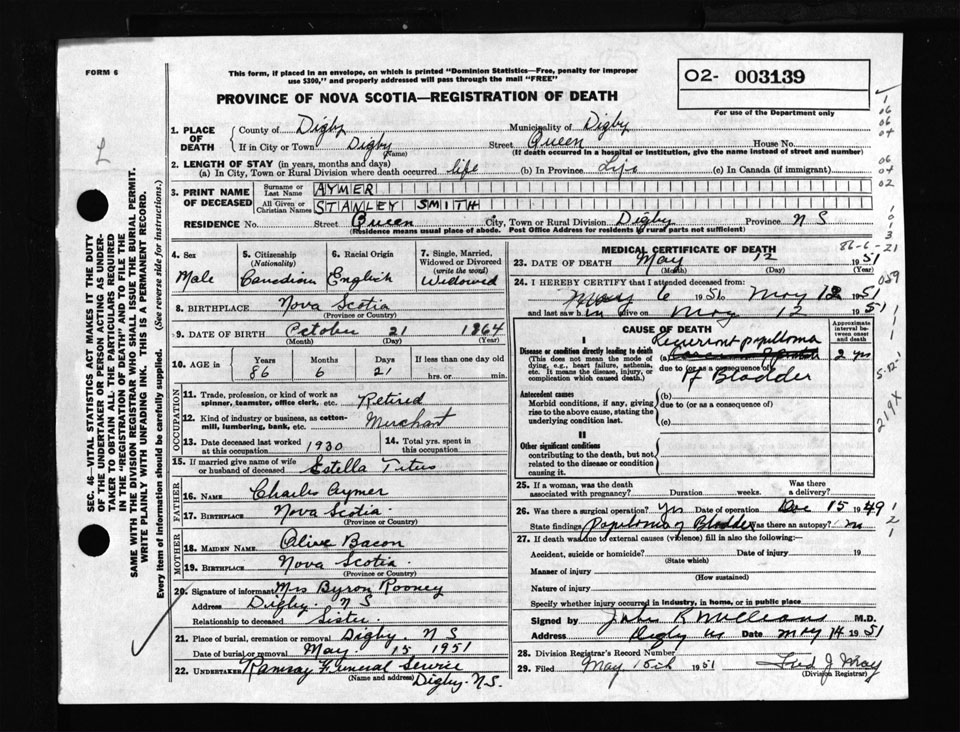 FORM 6
This form, if placed in an envelope, on which is printed "Dominion Statistics—Free, penalty for improper
use $300," and properly addressed will pass through the mail "FREE"
O2- 003139
For use of the Department only
PROVINCE OF NOVA SCOTIA—REGISTRATION OF DEATH
1. PLACE OF DEATH
County of Digby Municipality of Digby
If in City or Town Digby (Name) Street Queen House No.
(If death occurred in a hospital or institution, give the name instead of street and number)
2. LENGTH OF STAY (in years, months and days)
(a) In City, Town or Rural Division where death occurred life (b) In Province Life (c) In Canada (if immigrant)
3. PRINT NAME OF DECEASED
Surname or Last Name AYMER
All Given or Christian Names STANLEY SMITH
RESIDENCE No. Street Queen City, Town or Rural Division Digby Province N S
(Residence means usual place of abode. Post Office Address for residents in rural parts not sufficient)
4. Sex Male
5. Citizenship (Nationality) Canadian
6. Racial Origin English
7. Single, Married, Widowed or Divorced (write the word) Widowed
8. BIRTHPLACE Nova Scotia
(Province or Country)
9. DATE OF BIRTH October 21 1864
(Month) (Day) (Year)
10. AGE Years 86 Months 6 Days 21 If less than one day old hrs. or min.
OCCUPATION
11. Trade, profession, or kind of work as spinner, teamster, office clerk, etc. Retired
12. Kind of industry or business, as cotton-mill, lumbering, bank, etc. Merchant
13. Date deceased last worked at this occupation 1930
14. Total yrs. spent in this occupation
15. If married give name of wife or husband of deceased Estella Titus
FATHER
16. NAME Charles Aymer
17. BIRTHPLACE Nova Scotia
(Province or Country)
MOTHER
18. MAIDEN NAME Olive Bacon
19. BIRTHPLACE Nova Scotia
(Province or Country)
20. Signature of informant Mrs Byron Rooney
Address Digby N S
Relationship to deceased Sister
21. Place of burial, cremation or removal Digby. N S
Date of burial or removal May 15, 1951
22. UNDERTAKER Ramsay Funeral Service
(Name and address) Digby. N.S.
MEDICAL CERTIFICATE OF DEATH
86-6-21
23. DATE OF DEATH May 12 1951
(Month) (Day) (Year)
24. I HEREBY CERTIFY that I attended deceased from:
May 6 1951 May 12 1951
and last saw him alive on May 12 1951
CAUSE OF DEATH
Approximate interval between onset and death
I
Disease or condition directly leading to death
(This does not mean the mode of dying, e.g., heart failure, asthenia, etc. It means the disease, injury, or complication which caused death.)
(a) Recurrent papilloma
due to (or as a consequence of)
of Bladder
2 yrs
Antecedent causes
Morbid conditions, if any, giving rise to the above cause, stating the underlying condition last.
(b)
due to (or as a consequence of)
(c)
II
Other significant conditions
contributing to the death, but not related to the disease or condition causing it.
25. If a woman, was the death associated with pregnancy? Duration weeks. Was there a delivery?
26. Was there a surgical operation? yes Date of operation Dec 15 1949
State findings Papiloma of Bladder Was there an autopsy? no
27. If death was due to external causes (violence) fill in also the following:—
Accident, suicide or homicide? Date of injury 19
(State which)
Manner of injury
(How sustained)
Nature of injury
Specify whether injury occurred in industry, in home, or in public place
Signed by M.D.
Address Digby NS Date May 14 1951
28. Division Registrar's Record Number
29. Filed May 15th 1951 Fred J May
(Division Registrar)
SEC. 46—VITAL STATISTICS ACT MAKES IT THE DUTY
OF THE UNDERTAKER OR PERSON ACTING AS UNDER-
TAKER TO OBTAIN ALL THE PARTICULARS REQUIRED
IN THE "REGISTRATION OF DEATH" AND TO FILE THE
SAME WITH THE DIVISION REGISTRAR WHO SHALL ISSUE THE BURIAL PERMIT.
WRITE PLAINLY WITH UNFADING INK. THIS IS A PERMANENT RECORD.
Every item of information should be carefully supplied. (See reverse side for instructions.)
059
5-12
219X